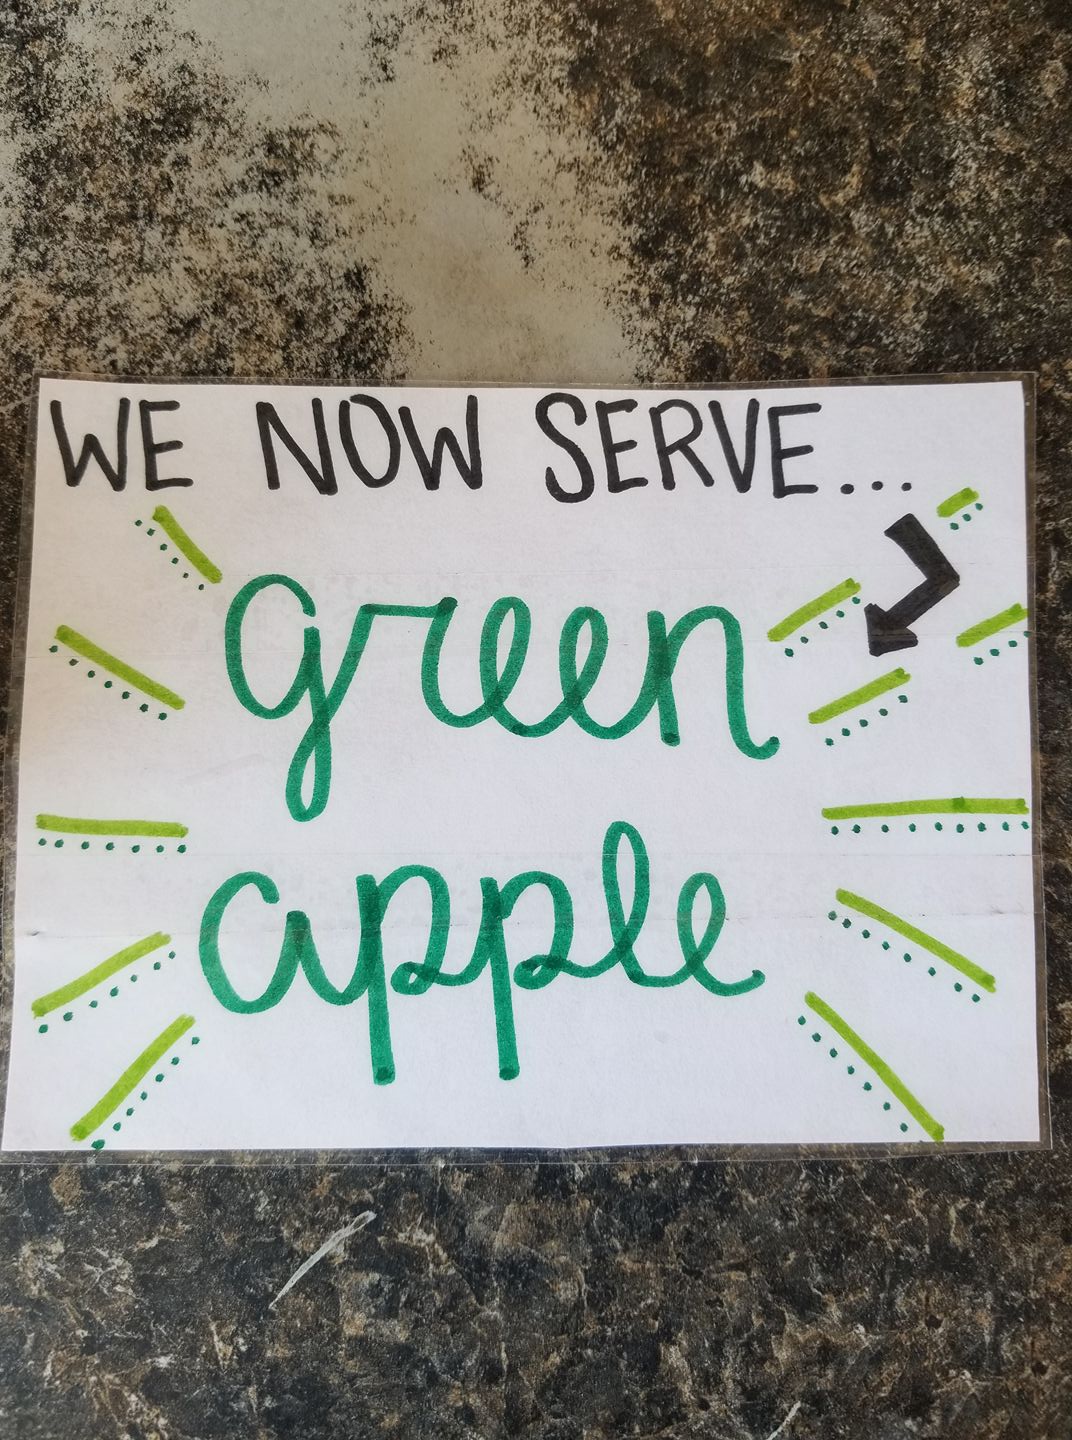 WE NOW SERVE...
green
apple